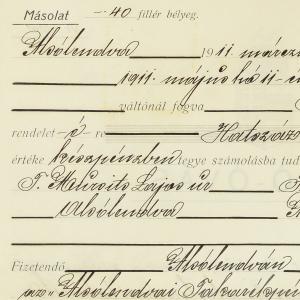 Másolat — 40 fillér bélyeg.
Alsólendva 1911. március
1911. május hó 11-én
váltónál fogva
rendelet-é-re Hatszáz
értéke készpénzben tegye számolásba tud
T. Muraits Lajos úr
Alsólendva
Fizetendő Alsólendván
az „Alsólendvai Takarékpén